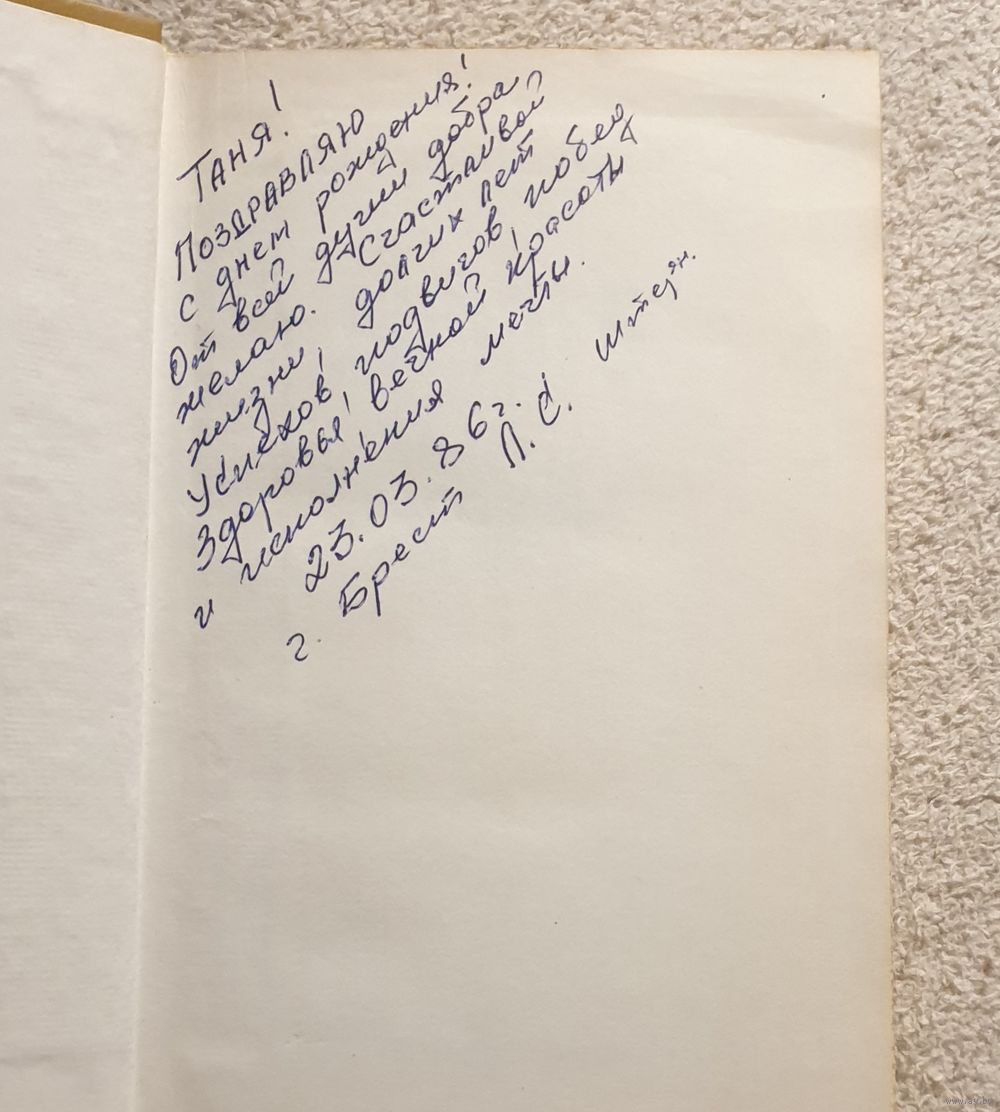 Таня!
Поздравляю
с днем рождения!
От всей души добра
желаю. Счастливой
жизни, долгих лет
Успехов, подвигов, побед
Здоровья, вечной красоты
и исполнения мечты.
23.03.86г.
г. Брест Л. С.
www.ay.by